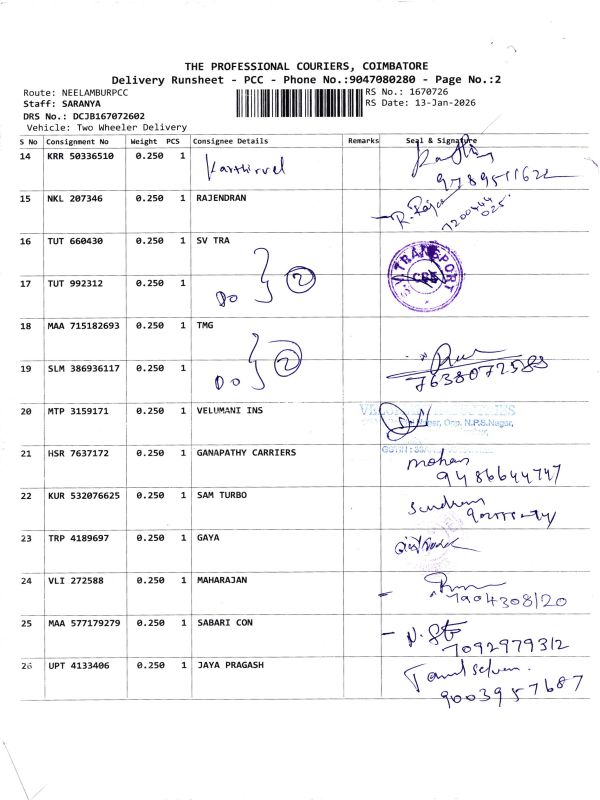 THE PROFESSIONAL COURIERS, COIMBATORE
Delivery Runsheet - PCC - Phone No.:9047080280 - Page No.:2
Route: NEELAMBURPCC
RS No.: 1670726
Staff: SARANYA
RS Date: 13-Jan-2026
DRS No.: DCJB167072602
Vehicle: Two Wheeler Delivery
S No Consignment No Weight PCS Consignee Details Remarks Seal & Signature
14 KRR 50336510 0.250 1 Karthirvel
9789511622
15 NKL 207346 0.250 1 RAJENDRAN R. Raja
7200444
025
16 TUT 660430 0.250 1 SV TRA
TRANSPORT
CBE
17 TUT 992312 0.250 1 DO 2
18 MAA 715182693 0.250 1 TMG
19 SLM 386936117 0.250 1 DO 2
7638072583
20 MTP 3159171 0.250 1 VELUMANI INS
Nagar, Opp. N.P.S.Nagar,
21 HSR 7637172 0.250 1 GANAPATHY CARRIERS mohan
9486644747
22 KUR 532076625 0.250 1 SAM TURBO
23 TRP 4189697 0.250 1 GAYA
24 VLI 272588 0.250 1 MAHARAJAN
7904308120
25 MAA 577179279 0.250 1 SABARI CON
7092979312
26 UPT 4133406 0.250 1 JAYA PRAGASH Tamil selvan.
9003957687